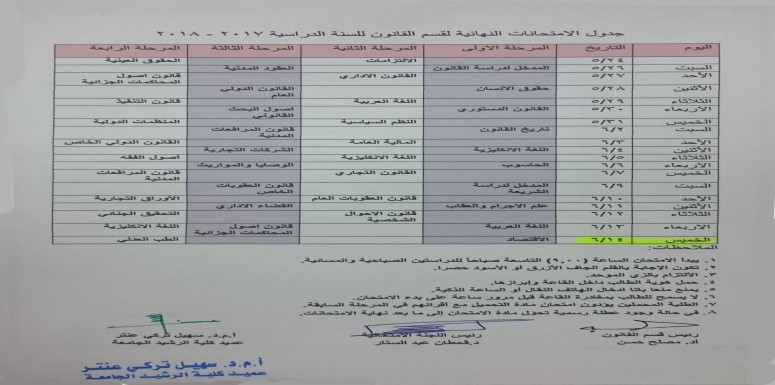 جدول الامتحانات النهائية لقسم القانون للسنة الدراسية ٢٠١٧ - ٢٠١٨
اليوم التاريخ المرحلة الأولى المرحلة الثانية المرحلة الثالثة المرحلة الرابعة
٥/٢٤ الالتزامات الحقوق العينية
السبت ٥/٢٦ المدخل لدراسة القانون العقود المدنية
الأحد ٥/٢٧ القانون الاداري قانون اصول المحاكمات الجزائية
الأثنين ٥/٢٨ حقوق الانسان القانون الدولي العام
الثلاثاء ٥/٢٩ اللغة العربية قانون التنفيذ
الاربعاء ٥/٣٠ القانون الدستوري اصول البحث القانوني
الخميس ٥/٣١ النظم السياسية المنظمات الدولية
السبت ٦/٢ تاريخ القانون قانون المرافعات المدنية
الأحد ٦/٣ المالية العامة القانون الدولي الخاص
الأثنين ٦/٤ اللغة الانكليزية الشركات التجارية
الثلاثاء ٦/٥ اللغة الانكليزية اصول الفقه
الاربعاء ٦/٦ الحاسوب الوصايا والمواريث
الخميس ٦/٧ القانون التجاري قانون المرافعات المدنية
السبت ٦/٩ المدخل لدراسة الشريعة قانون العقوبات الخاص
الأحد ٦/١٠ قانون العقوبات العام الأوراق التجارية
الأثنين ٦/١١ علم الاجرام والعقاب القضاء الاداري
الثلاثاء ٦/١٢ قانون الاحوال الشخصية التحقيق الجنائي
الاربعاء ٦/١٣ اللغة العربية قانون اصول المحاكمات الجزائية اللغة الانكليزية
الخميس ٦/١٤ الأقتصاد الطب العدلي
الملاحظات:
١. يبدأ الامتحان الساعة (٩,٠٠) التاسعة صباحاً للدراستين الصباحية والمسائية.
٢. تكون الإجابة بالقلم الجاف الأزرق أو الأسود حصرا.
٣. الألتزام بالزي الموحد.
٤. حمل هوية الطالب داخل القاعة وإبرازها.
٥. يمنع منعا باتا ادخال الهاتف النقال أو الساعة الذكية.
٦. لا يسمح للطالب بمغادرة القاعة قبل مرور ساعة على بدء الامتحان.
٧. الطلبة المحملين يؤدون امتحان مادة التحميل مع اقرانهم في المرحلة السابقة.
٨. في حالة وجود عطلة رسمية تحول مادة الامتحان إلى ما بعد نهاية الامتحانات.
رئيس قسم القانون رئيس اللجنة الامتحانية أ.م.د. سهيل تركي عنتر
أ.د. مصلح حسن د.قحطان عبد الستار عميد كلية الرشيد الجامعة
أ.م.د. سهيل تركي عنتر
عميد كلية الرشيد الجامعة